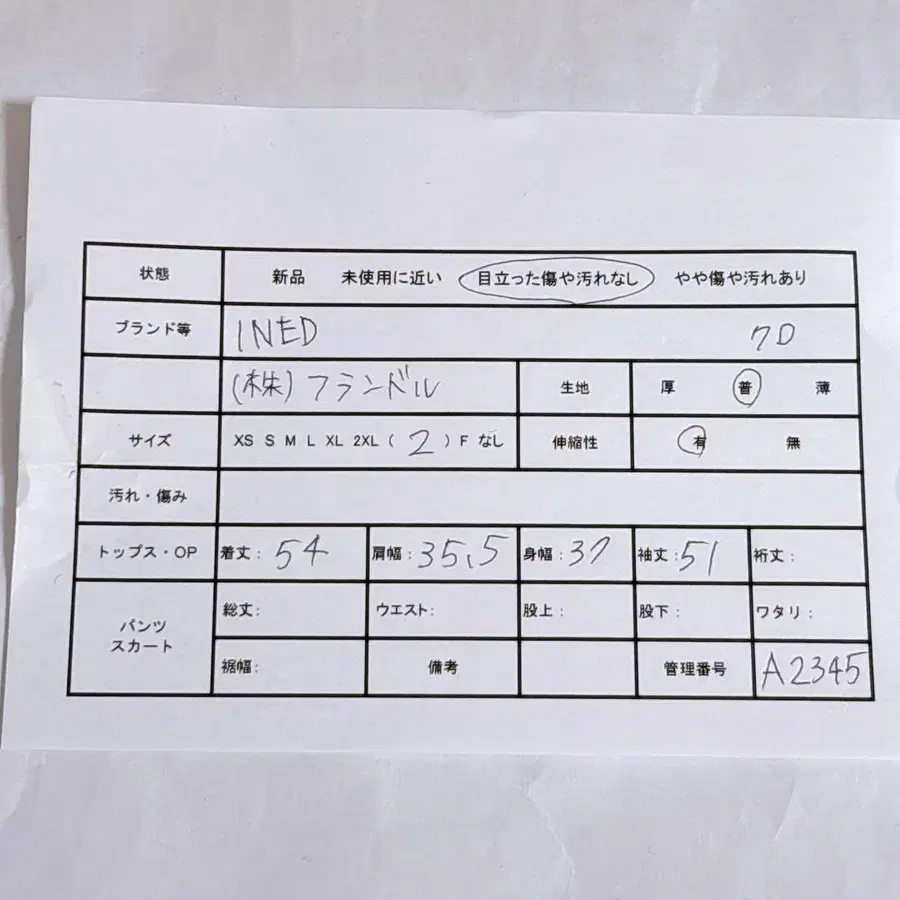 状態 新品 未使用に近い 目立った傷や汚れなし やや傷や汚れあり
ブランド等 INED クロ
(株)フランドル 生地 厚 普 薄
サイズ XS S M L XL 2XL ( 2 ) F なし 伸縮性 有 無
汚れ・傷み
トップス・OP 着丈: 54 肩幅: 35.5 身幅: 37 袖丈: 51 裄丈:
パンツ スカート 総丈: ウエスト: 股上: 股下: ワタリ:
裾幅: 備考 管理番号 A2345